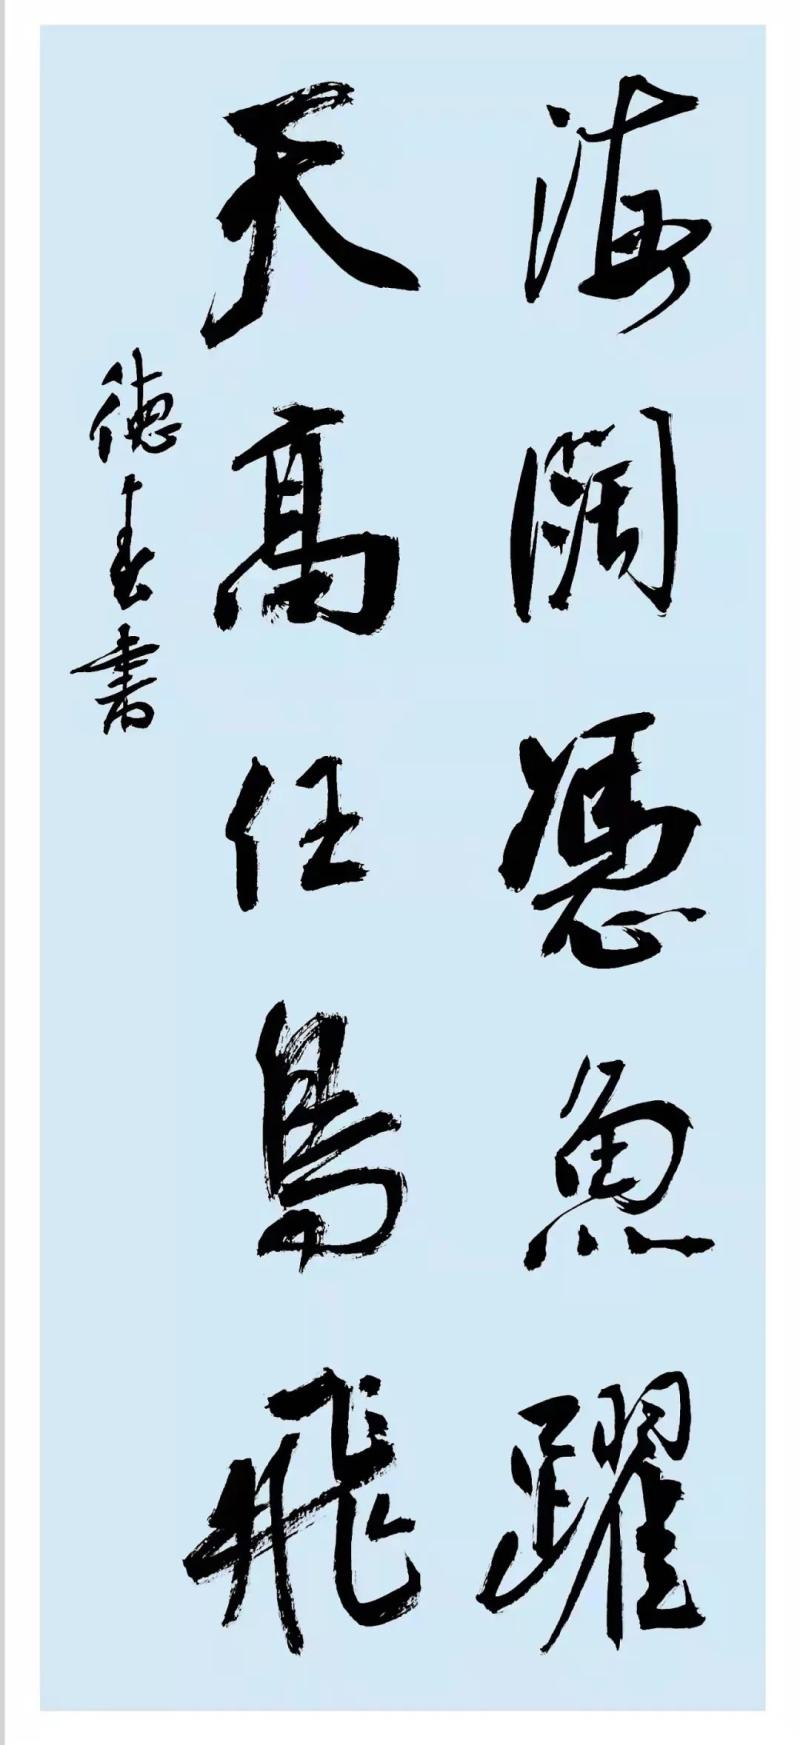 海闊憑魚躍
天高任鳥飛
德春書